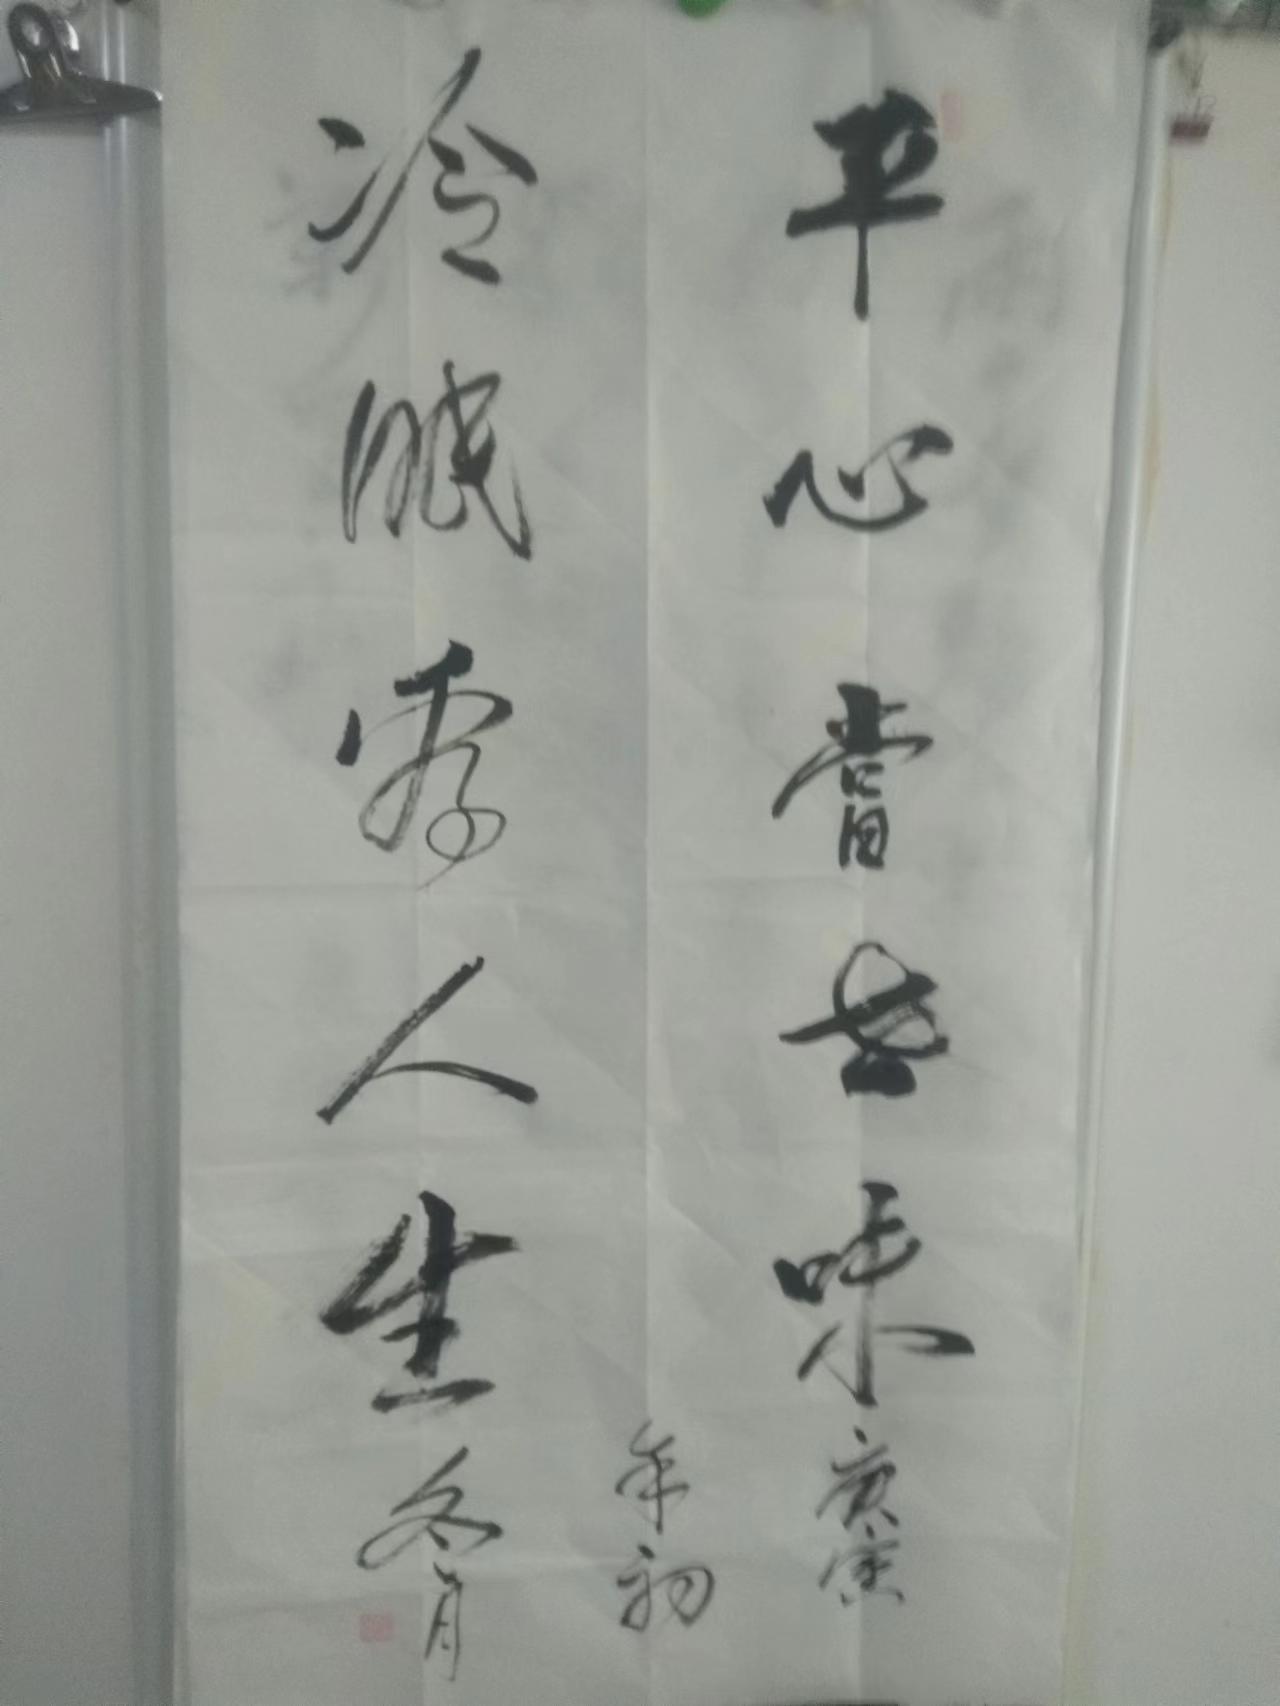 平心嘗世味
庚寅
年初
冷眼看人生
冬月